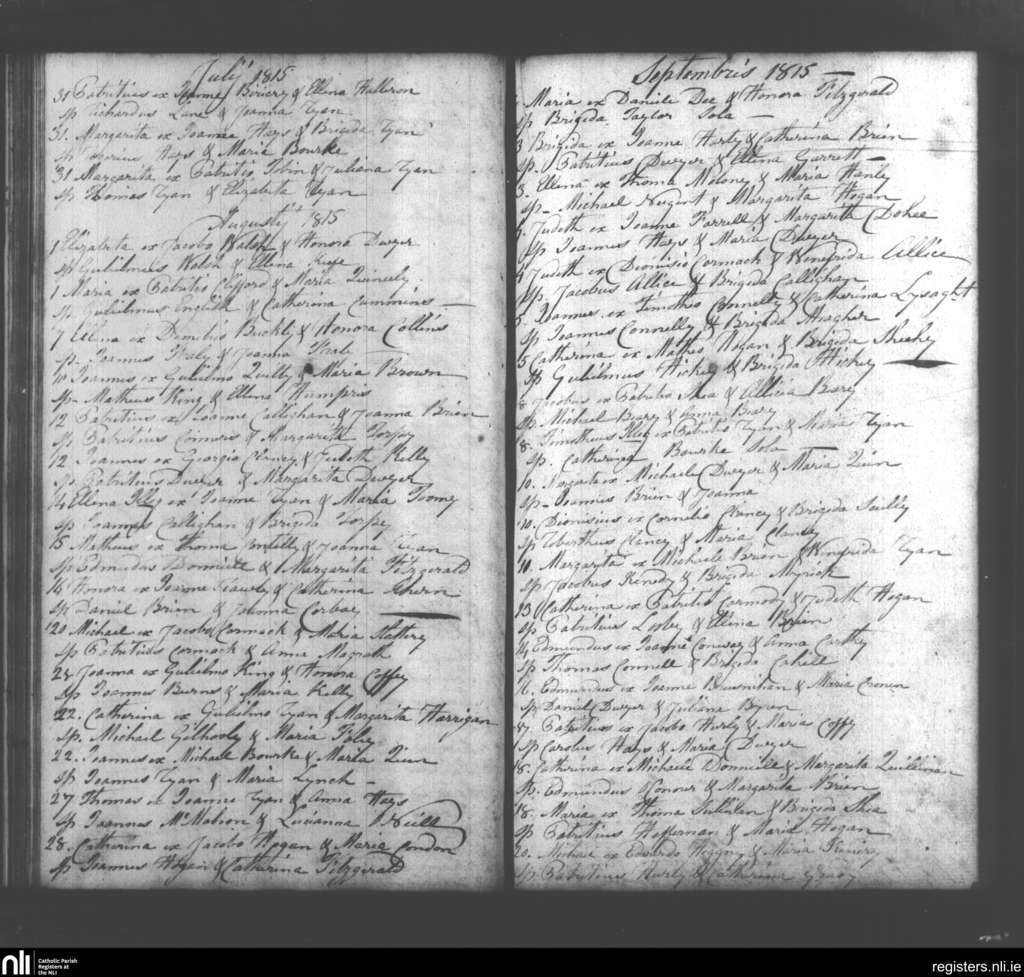 July 1815
31 Patritius ex Joanne Bourey & Ellena Halloron
Sp Richardus Lane & Joanna Ryan
31. Margarita ex Joanne Hays & Brigida Ryan
Sp Hays & Maria Bourke
31 Margarita ex Patritio Tobin & Juliana Ryan
Sp Thomas Ryan & Elizabeta Ryan
Augusti 1815
1 Elizabeta ex Jacobo Walsh & Honora Dwyer
Sp Gulielmus Walsh & Ellena Keefe
1 Maria ex Patritio Clifford & Maria
Sp. Gulielmus English & Catherina Cummins
7 Ellena ex Buckly & Honora Collins
Sp. Joannus & Joanna
10 Joannus ex Gulielmo Quilty & Maria Brown
Sp. Matheus King & Ellena Humpris
12 Patritius ex Joanne Callighan & Joanna Brien
Sp. Patritius & Margarita Torpy
12. Joannus ex Georgio Clancy & Judeth Kelly
Sp Patritius Dwyer & Margarita Dwyer
14 Ellena ex Joanne Ryan & Maria Twomy
Sp Joannus Callighan & Brigida Torpy
15 Matheus ex Thoma & Joanna Ryan
Sp Edmundus Donnielle & Margarita Fitzgerald
16 Honora ex Joanne & Catherina Ahern
Sp Daniel Brien & Joanna Corbay
20 Michael ex Jacobo Cormack & Maria Slattery
Sp Patritius Cormack & Anna Magrath
21 Joanna ex Gulielmo King & Honora Coffy
Sp Joannus Burns & Maria Kelly
22. Catherina ex Gulielmo Ryan & Margarita Harrigan
Sp. Michael Gilhooly & Maria
22. Joannus ex Michael Bourke & Maria Quin
Sp Joannus Ryan & Maria Lynch
27 Thomas ex Joanne Ryan & Anna Hays
Sp. Joannus McMahon & Lucianna O Neill
28. Catherina ex Jacobo Hogan & Maria Condon
Sp Joannus Hogan & Catherina Fitzgerald
Septembris 1815
Maria ex Daniele Dee & Honora Fitzgerald
Sp Brigida Taylor Sola
3 Brigida ex Joanne Hurly & Catherina Brien
Sp. Patritius Dwyer & Ellena Garrett
3. Ellena ex Thoma Moloney & Maria Hanly
Sp. Michael Nugent & Margarita Hogan
Judeth ex Joanne Farrell & Margarita
Sp Joannus Hays & Maria Dwyer
4 Judeth ex Dionisio Cormack & Winefrida Allice
Sp. Jacobus Allice & Brigida Callighan
5. Joannus ex Timotheo Connelly & Catherina Lysaght
Sp Joannus Connelly & Brigida Meagher
5 Catherina ex Matheo Hogan & Brigida Sheehy
Sp Gulielmus Hickey & Brigida Hickey
8 Jacobus ex Patritio Shea & Allicia Bary
Sp Michael Bary & Anna Bary
8. Timotheus ex Patritio Ryan & Maria Ryan
Sp. Catherina Bourke Sola
10. Margarita ex Michaele Dwyer & Maria Quin
Sp. Joannus Brien & Joanna
10. Dionisius ex Cornelio Clancy & Brigida
Sp Clancy & Maria Clancy
10. Margarita ex Michaele Brien & Winefrida Ryan
Sp Jacobus Kenedy & Brigida
13 Catherina ex Patritio Carmody & Judeth Hogan
Sp. Patritius & Ellena Brien
14 Edmundus ex Joanne Conway & Anna Carthy
Sp Thomas Connell & Brigida Cahill
16. Edmundus ex Joanne & Maria Cronen
Sp Daniel Dwyer & Juliana Bryan
17. Patritius ex Jacobo Hurly & Maria Coffy
Sp Carolus Hays & Maria Dwyer
18. Catherina ex Michaele Donnielle & Margarita
Sp. Edmundus Conour & Margarita Brien
18. Maria ex Thoma & Brigida Shea
Sp Patritius Heffernan & Maria Hogan
20. Michael ex Edwardo Hogan & Maria
Sp Patritius Hurly & Catherina
nli
Catholic Parish
Registers at
the NLI
registers.nli.ie